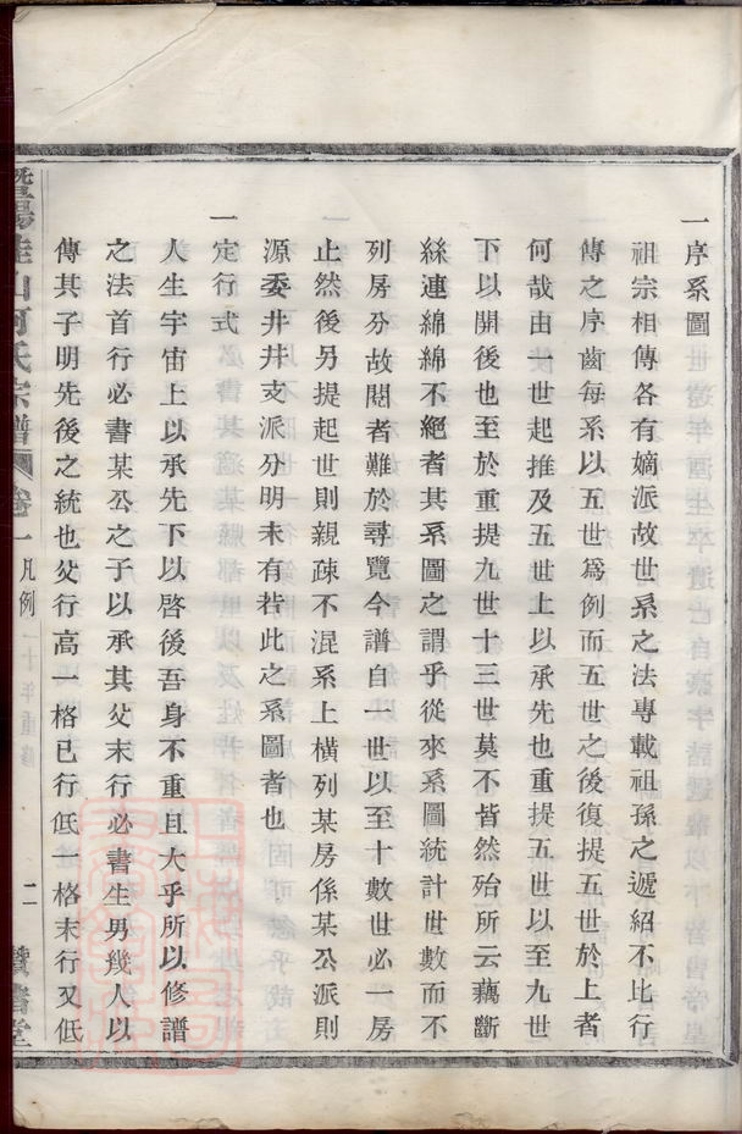 一序系圖
祖宗相傳各有嫡派故世系之法專載祖孫之遞紹不比行
傳之序齒每系以五世爲例而五世之後復提五世於上者
何哉由一世起推及五世上以承先也重提五世以至九世
下以開後也至於重提九世十三世莫不皆然殆所云藕斷
絲連綿綿不絕者其系圖之謂乎從來系圖統計世數而不
列房分故閱者難於尋覽今譜自一世以至十數世必一房
止然後另提起世則親疎不混系上橫列某房係某公派則
源委井井支派分明未有若此之系圖者也
一定行式
人生宇宙上以承先下以啓後吾身不重且大乎所以修譜
之法首行必書某公之子以承其父末行必書生男幾人以
傳其子明先後之統也父行高一格已行低一格末行又低
暨陽 山何氏宗譜 卷一 凡例 二 堂